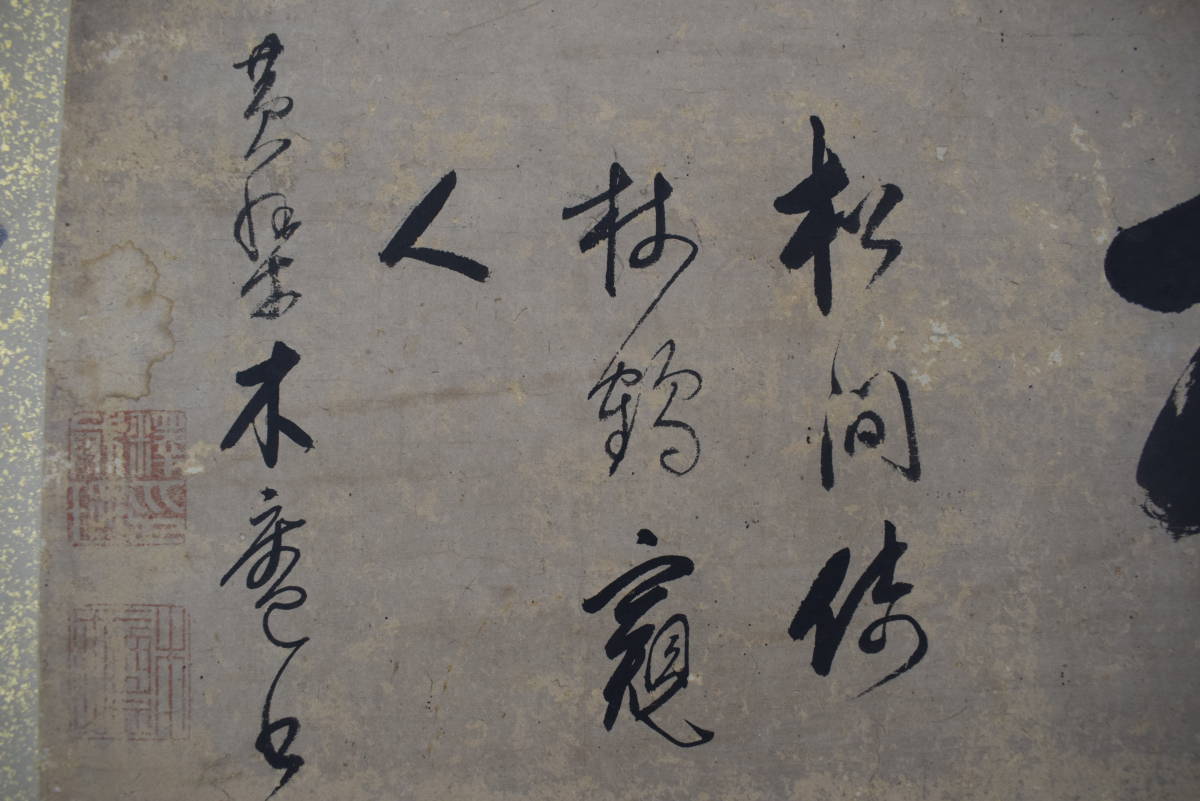 松間倚
杖鶴窺
人
黄檗木庵書